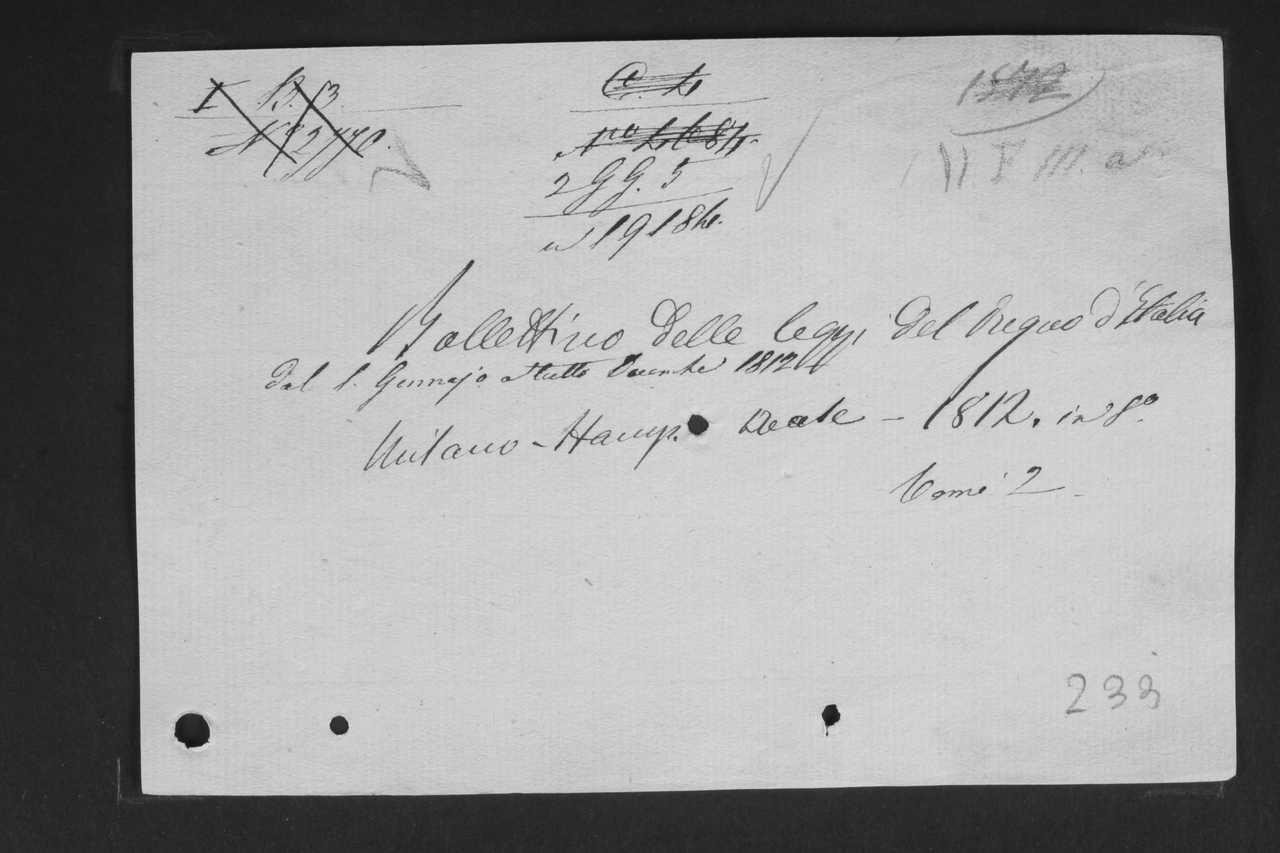 I B. 3
N° 2770.
C. 4
2 GG. 5
n 1918
Bollettino delle leggi del Regno d'Italia
dal 1. Gennajo a tutto Decembe 1812
Milano - Stamp. Reale - 1812. in 8°
Tomi 2
233